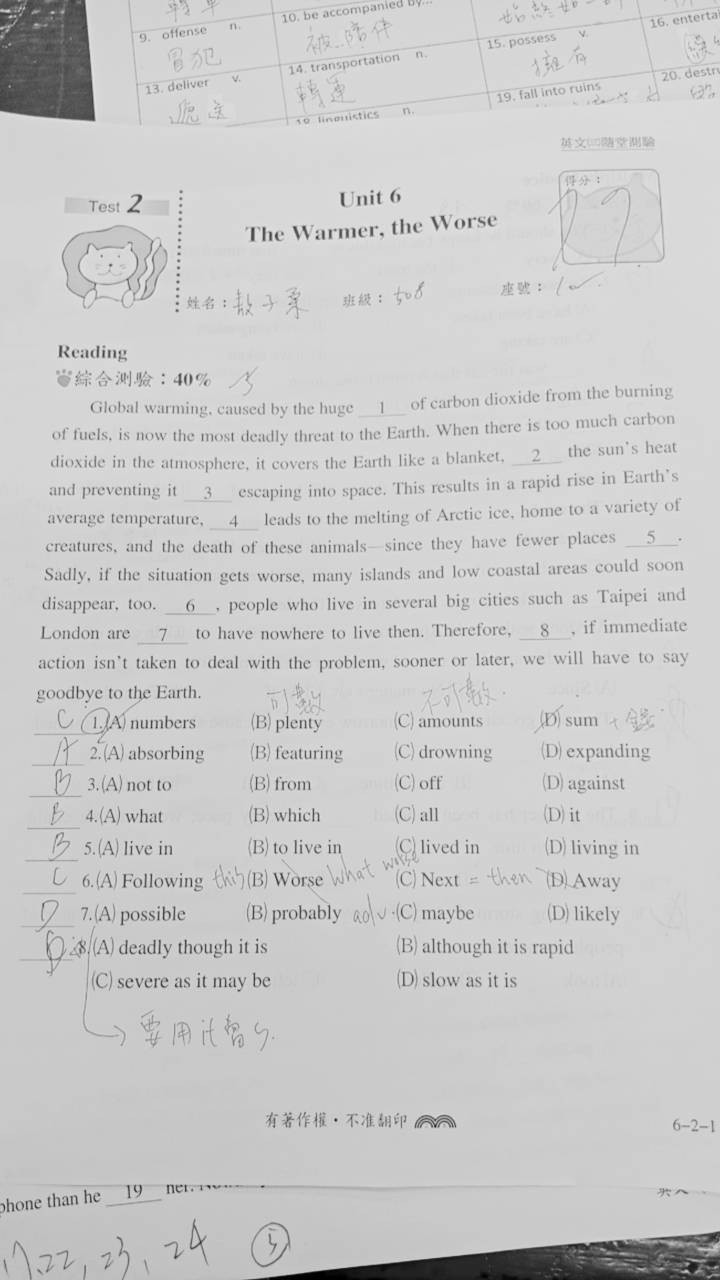 9. offense n.
冒犯
10. be accompanied by...
被...陪伴
15. possess v.
擁有
16. enterta
13. deliver v.
遞送
14. transportation n.
轉運
19. fall into ruins
20. destr
18. linguistics n.
英文㈡隨堂測驗
Test 2
Unit 6
The Warmer, the Worse
得分：
姓名： 班級：308 座號：
Reading
綜合測驗：40%
Global warming, caused by the huge 1 of carbon dioxide from the burning
of fuels, is now the most deadly threat to the Earth. When there is too much carbon
dioxide in the atmosphere, it covers the Earth like a blanket, 2 the sun's heat
and preventing it 3 escaping into space. This results in a rapid rise in Earth's
average temperature, 4 leads to the melting of Arctic ice, home to a variety of
creatures, and the death of these animals—since they have fewer places 5 .
Sadly, if the situation gets worse, many islands and low coastal areas could soon
disappear, too. 6 , people who live in several big cities such as Taipei and
London are 7 to have nowhere to live then. Therefore, 8 , if immediate
action isn't taken to deal with the problem, sooner or later, we will have to say
goodbye to the Earth.
可數 不可數.
C 1.(A) numbers (B) plenty (C) amounts (D) sum + 錢
A 2.(A) absorbing (B) featuring (C) drowning (D) expanding
B 3.(A) not to (B) from (C) off (D) against
B 4.(A) what (B) which (C) all (D) it
B 5.(A) live in (B) to live in (C) lived in (D) living in
C 6.(A) Following this (B) Worse What worse (C) Next = then (D) Away
D 7.(A) possible (B) probably adv. (C) maybe (D) likely
8.(A) deadly though it is (B) although it is rapid
(C) severe as it may be (D) slow as it is
→ 要用it當S.
有著作權・不准翻印
6-2-1
phone than he 19 her.
22, 23, 24 ⑤